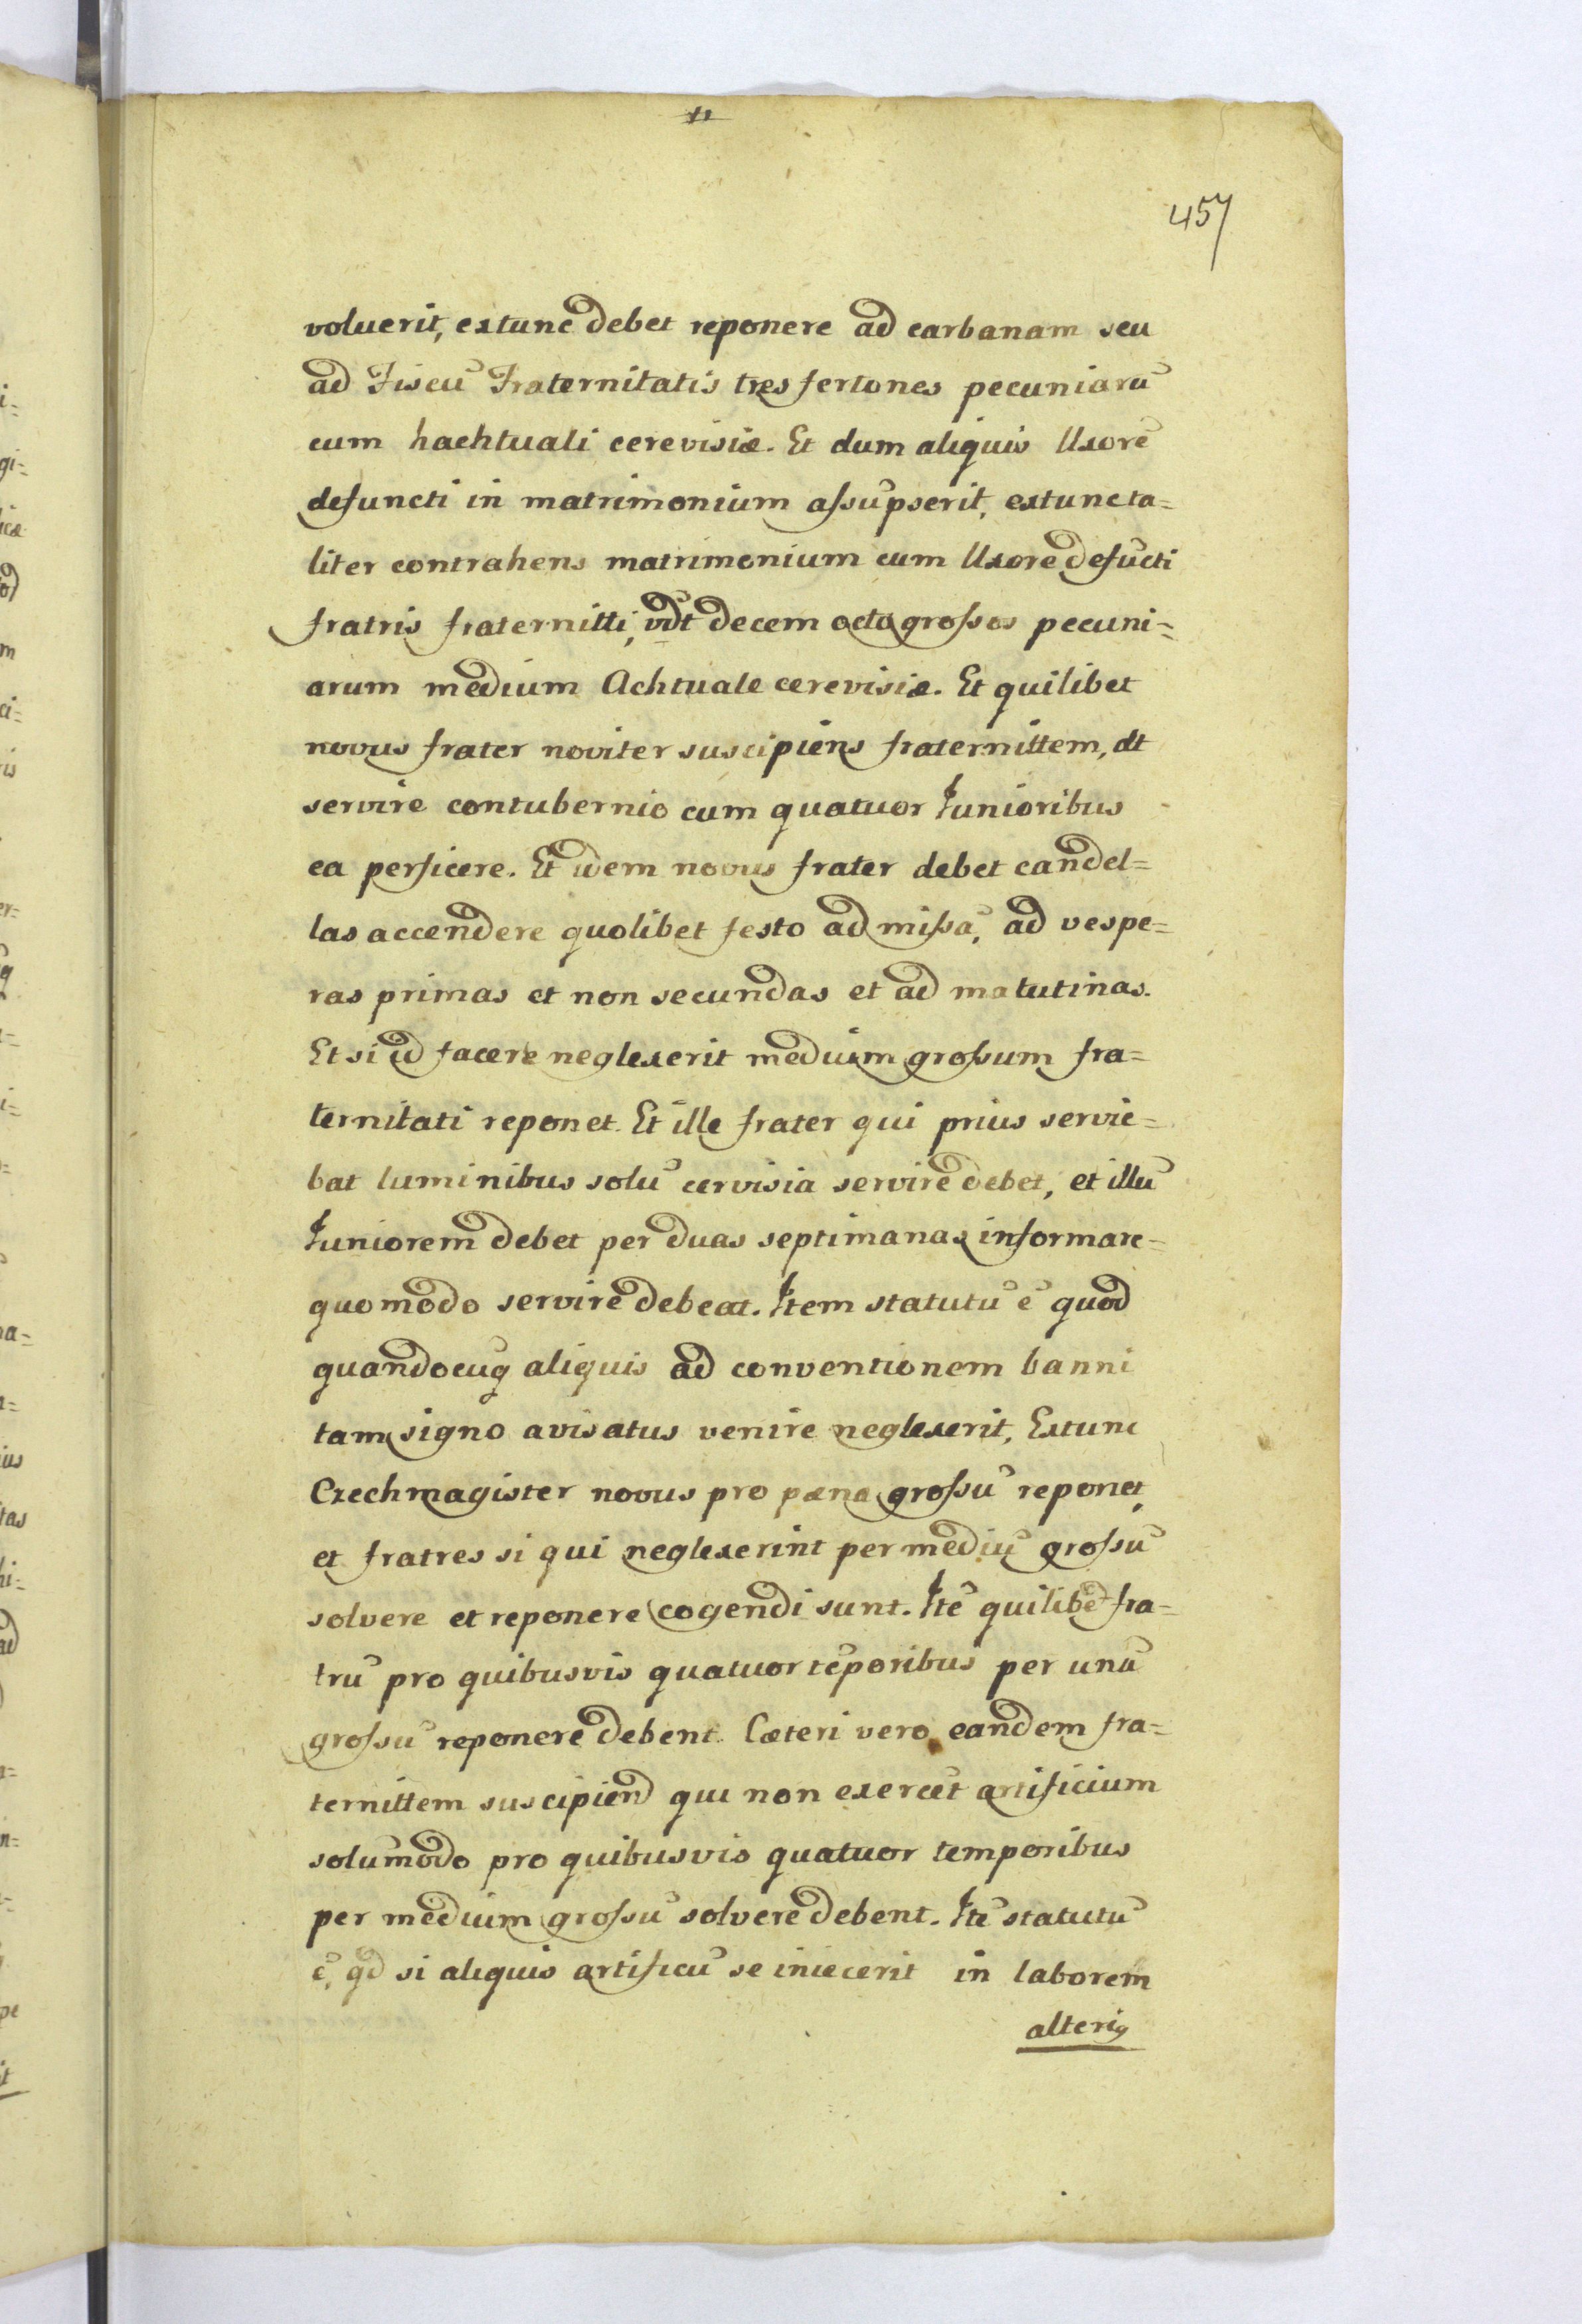 457
voluerit, extunc debet reponere ad carbanam seu
ad Fiscũ Fraternitatis tres fertones pecuniarũ
cum hachtuali cerevisiæ. Et dum aliquis Uxorẽ
defuncti in matrimonium assũpserit, extunc ta=
liter contrahens matrimonium cum Uxore defũcti
fratris fraternitti, vdt decem octo grossos pecuni=
arum medium Achtuale cerevisiæ. Et quilibet
novus frater noviter suscipiens fraternittem, dt
servire contubernio cum quatuor Iunioribus
ea perficere. Et idem novus frater debet candel=
las accendere quolibet festo ad missã, ad vespe=
ras primas et non secundas et ad matutinas.
Et si id facere neglexerit medium grossum fra=
ternitati reponet. Et ille frater qui prius servie=
bat luminibus solũ cervisia servire debet, et illũ
Iuniorem debet per duas septimanas informare=
quomodo servire debeat. Item statutũ ẽ quod
quandocuq aliquis ad conventionem banni
tam signo avisatus venire neglexerit, Extunc
Czechmagister novus pro pæna grossũ reponet,
et fratres si qui neglexerint per mediũ grossũ
solvere et reponere cogendi sunt. Itẽ quilibet fra=
trũ pro quibusvis quatuor tẽporibus per unũ
grossũ reponere debent. Cæteri vero eandem fra=
ternittem suscipiend qui non exercẽt artificium
solũmodo pro quibusvis quatuor temporibus
per medium grossũ solvere debent. Itẽ statutũ
ẽ, qd si aliquis artificũ se iniecerit in laborem
alteriq